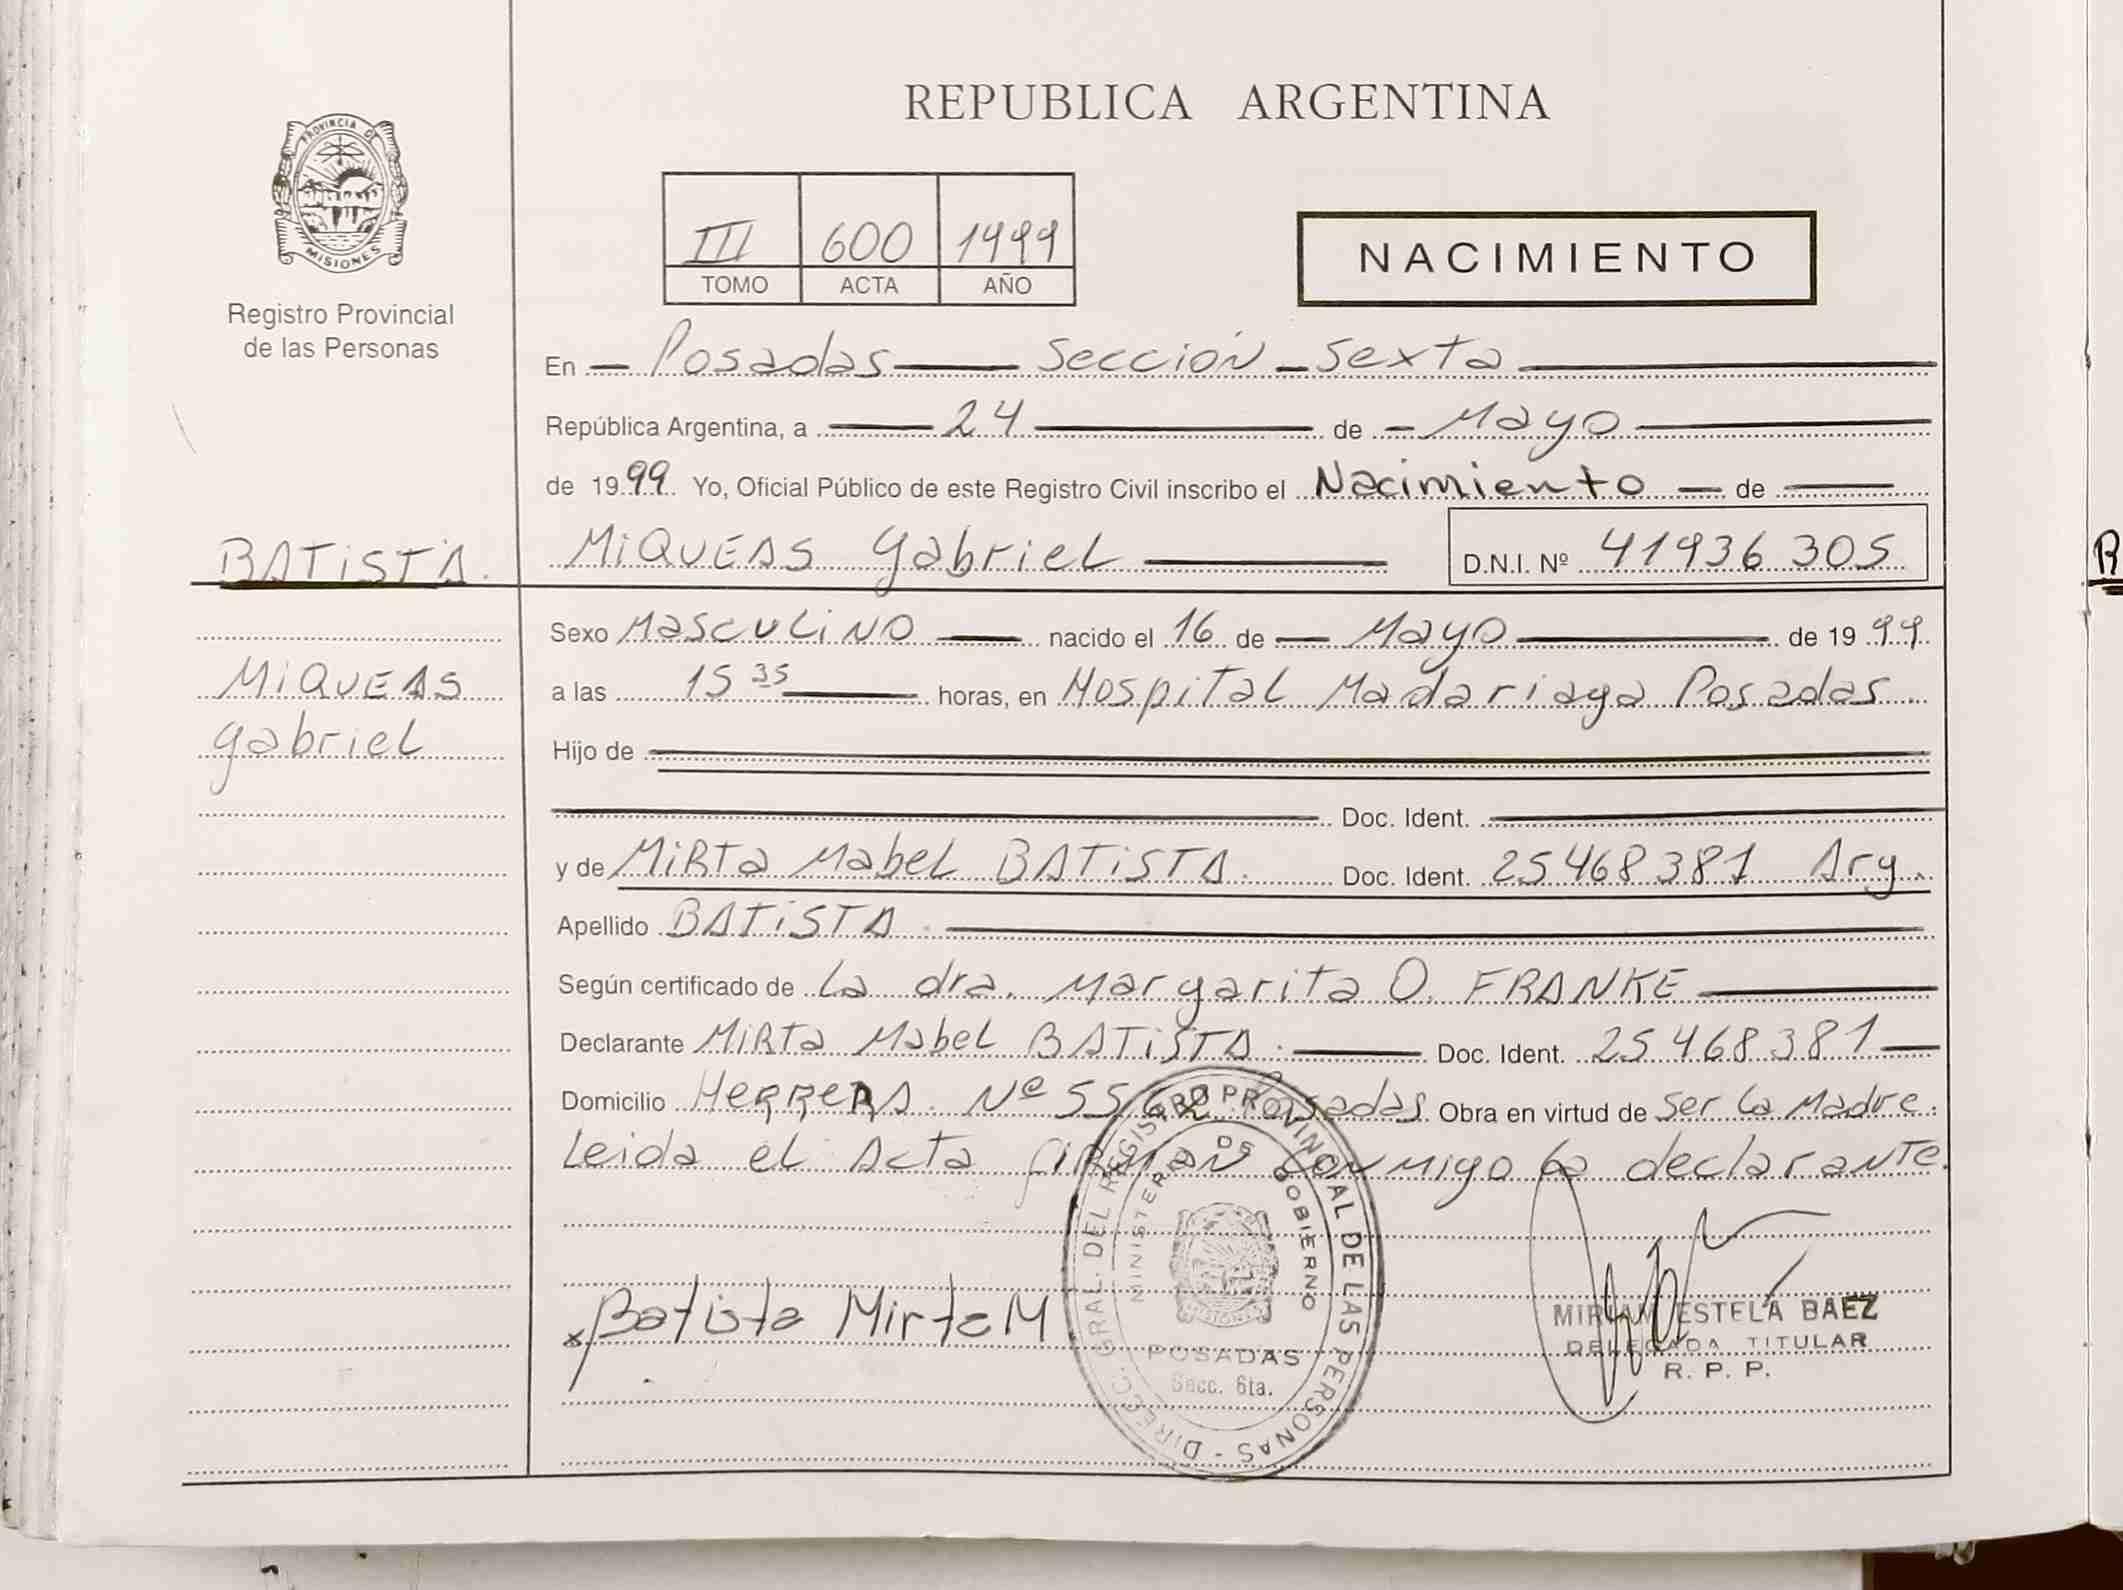 REPUBLICA ARGENTINA
PROVINCIA DE
MISIONES
Registro Provincial
de las Personas
III 600 1999
TOMO ACTA AÑO
NACIMIENTO
En Posadas Sección Sexta
República Argentina, a 24 de Mayo
de 1999 Yo, Oficial Público de este Registro Civil inscribo el Nacimiento de
BATISTA. MIQUEAS Gabriel D.N.I. Nº 41936305
Sexo MASCULINO nacido el 16 de Mayo de 1999
MIQUEAS
Gabriel
a las 15 35 horas, en Hospital Madariaga Posadas
Hijo de
Doc. Ident.
y de MIRTA Mabel BATISTA. Doc. Ident. 25468381 Arg.
Apellido BATISTA.
Según certificado de La dra. Margarita O. FRANKE
Declarante MIRTA Mabel BATISTA. Doc. Ident. 25468381
Domicilio HERRERA. Nº 5562 Posadas. Obra en virtud de ser la Madre.
Leida el Acta firman conmigo la declarante.
x Batista Mirta M
DIREC. GRAL. DEL REGISTRO PROVINCIAL DE LAS PERSONAS -
MINISTERIO DE GOBIERNO
MISIONES
POSADAS
Secc. 6ta.
MIRIAM ESTELA BAEZ
DELEGADA TITULAR
R. P. P.